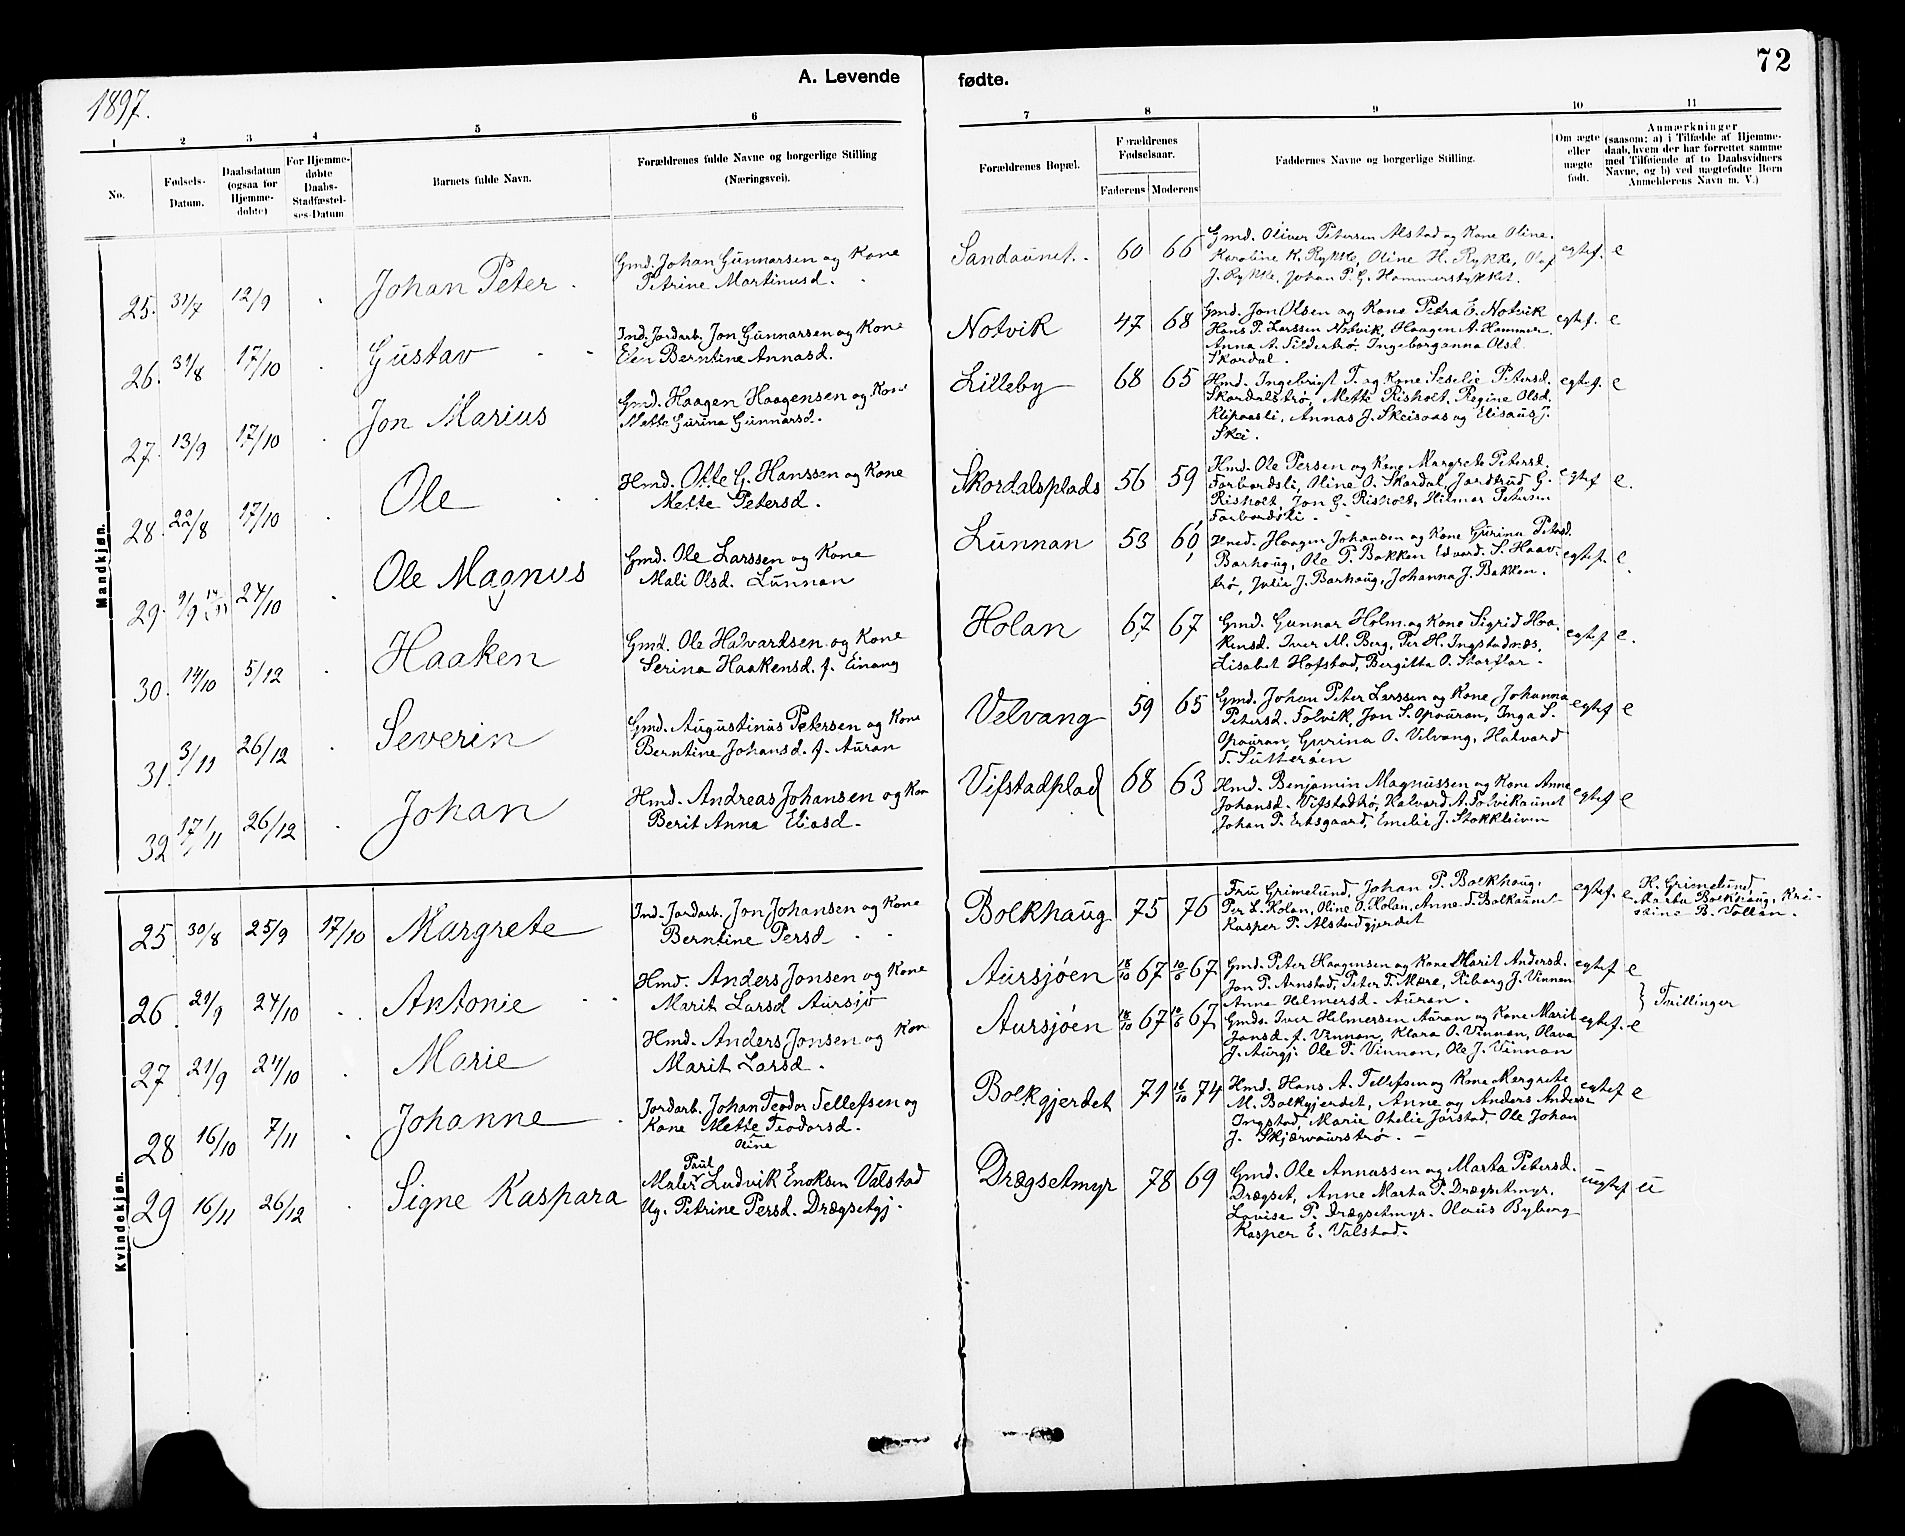 72
A. Levende
fødte.
1897.
1 2 3 4 5 6
7 8 9 10 11
No.
Fødsels-
Datum.
Daabsdatum
(ogsaa for
Hjemme-
døbte)
For Hjemme-
døbte
Daabs-
Stadfæstel-
ses-Datum
Barnets fulde Navn.
Forældrenes fulde Navne og borgerlige Stilling
(Næringsvei).
Forældrenes Bopæl.
Forældrenes
Fødselsaar.
Faderens Moderens
Faddernes Navne og borgerlige Stilling.
Om ægte
eller
uægte
født.
Anmærkninger
(saasom: a) i Tilfælde af Hjemme-
daab, hvem der har forrettet samme
med Tilføiende af to Daabsvidners
Navne, og b) ved uægtefødte Børn
Anmelderens Navn m. V.)
Mandkjøn.
25. 31/7 12/9 Johan Peter
Gmd. Johan Gunnarsen og Kone
Petrine Martinusd.
Sandaunet. 60 66
Gmd. Oliver Petersen Alstad og Kone Oline.
Karoline K. Rykke, Oline H. Rykke, Olaf
J. Rykke. Johan P. G. Hammerstykket.
egtef. e
26. 31/8 17/10 Gustav
Ind. Jordarb. Jon Gunnarsen og Kone
Elen Berntine Annasd.
Notvik 47 68
Gmd. Jon Olsen og Kone Petra E. Notvik
Hans P. Larssen Notvik, Haagen A. Hammer.
Anna A. Tildertrø. Ingeborganna Olsd.
Skordal.
egtef. e
27. 13/9 17/10 Jon Marius
Gmd. Haagen Haagensen og Kone
Mette Gurina Gunnarsd.
Lilleby 68 65
Hmd. Ingebrigt T. og Kone Seselie Petersd.
Skordalstrø, Mette Risholt, Regine Olsd.
Klipaasli, Annas J. Skeisaas og Elisæus J.
Skei.
egtef. e
28. 22/8 17/10 Ole
Hmd. Otte G. Hanssen og Kone
Mette Petersd.
Skordalsplads 56 59
Hmd. Ole Persen og Kone Margrete Petersd.
Forbordsli, Oline O. Skordal, Jardtrud G.
Risholt, Jon G. Risholt, Hilmar Petersen
Forbordsli
egtef e.
29. 9/9 24/10 Ole Magnus
Gmd. Ole Larssen og Kone
Mali Olsd. Lunnan
Lunnan 53 60
Hmd. Haagen Johansen og Kone Gurina Petersd.
Barhaug, Ole P. Bakken Edvard S. Haav-
trø, Julie J. Barhaug, Johanna J. Bakken.
egtef. e.
30. 14/10 5/12 Haaken
Gmd. Ole Halvardsen og Kone
Serina Haakensd. f. Einang
Holan 67 67
Gmd. Gunnar Holm og Kone Sigrid Haa-
kensd. Iver M. Berg, Per H. Ingstadnæs,
Lisabet Hofstad, Bergitta O. Storflor.
egtef e.
31. 3/11 26/12 Severin
Gmd. Augustinus Petersen og Kone
Berntine Johansd. f. Auran
Velvang 59 65
Gmd. Johan Peter Larssen og Kone Johanna
Petersd. Folvik, Jon S. Opauran, Inga S.
Opauran, Gurina O. Velvang, Halvard
T. Sutterøen
egtef e
32 17/11 26/12 Johan
Hmd. Andreas Johansen og Kone
Berit Anna Eliasd.
Vifstadplad 68 63
Hmd. Benjamin Magnussen og Kone Anne
Johansd. Vifstadtrø, Halvard A. Folvikaunet
Johan P. Ertsgaard, Emelie J. Stokkleiven
egtef e
Kvindekjøn.
25 30/8 25/9 17/10 Margrete
Ind. Jordarb. Jon Johansen og Kone
Berntine Persd
Bolkhaug 75 76
Fru Grimelund, Johan P. Bolkhaug.
Per L. Holan, Oline O. Holan, Anne T. Bolkaunet
Kasper P. Alstadgjerdet
egtef. e
H. Grimelund,
Marta Bolkhaug, Kri-
stine B. Vollan.
26 21/9 24/10 Antonie
Hmd. Anders Jonsen og Kone
Marit Larsd Aursjø
Aursjøen 18/10 67 10/6 67
Gmd. Peter Haagensen og Kone Marit Andersd.
Jon P. Arnstad, Peter T. Mære, Kiborg J. Vinnan
Anna Helmersd. Auran.
egtef e
} Tvillinger
27 21/9 24/10 Marie
Hmd. Anders Jonsen og Kon
Marit Larsd.
Aursjøen 18/10 67 10/6 67
Gmds. Iver Helmersen Auran og Kone Marit
Jonsd. f. Vinnan, Klara O. Vinnan, Olava
J. Aursj. Ole P. Vinnan, Ole J. Vinnan
egtef. e
28 16/10 7/11 Johanne
Jordarb. Johan Teodor Tellefsen og
Kone Mette Teodorsd.
Oline
Bolkgjerdet 71 16/10 74
Hmd. Hans A. Tellefsen og Kone Margrete
M. Bolkgjerdet, Anne og Anders Anderss
Ingstad, Marie Otelie Jørstad, Ole Johan
J. Skjærvaurstrø.
egtef e
29 16/11 26/12 Signe Kaspara
Paul
Maler Ludvik Enoksen Valstad
Ug. Petrine Persd. Drægsetgj.
Drægsetmyr 78 69
Gmd. Ole Annassen og Marta Petersd.
Drægset, Anne Marta P. Drægsetmyr.
Lovise P. Drægsetmyr. Olaus Byberg
Kasper E. Valstad.
uegtef u